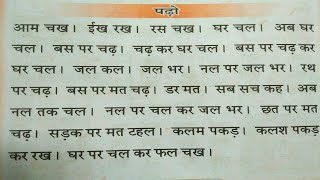 पढ़ो
आम चख। ईख रख। रस चख। घर चल। अब घर
चल। बस पर चढ़। चढ़ कर घर चल। बस पर चढ़ कर
घर चल। जल कल। जल भर। नल पर जल भर। रथ
पर चढ़। बस पर मत चढ़। डर मत। सब सच कह। अब
नल तक चल। नल पर चल कर जल भर। छत पर मत
चढ़। सड़क पर मत टहल। कलम पकड़। कलश पकड़
कर रख। घर पर चल कर फल चख।